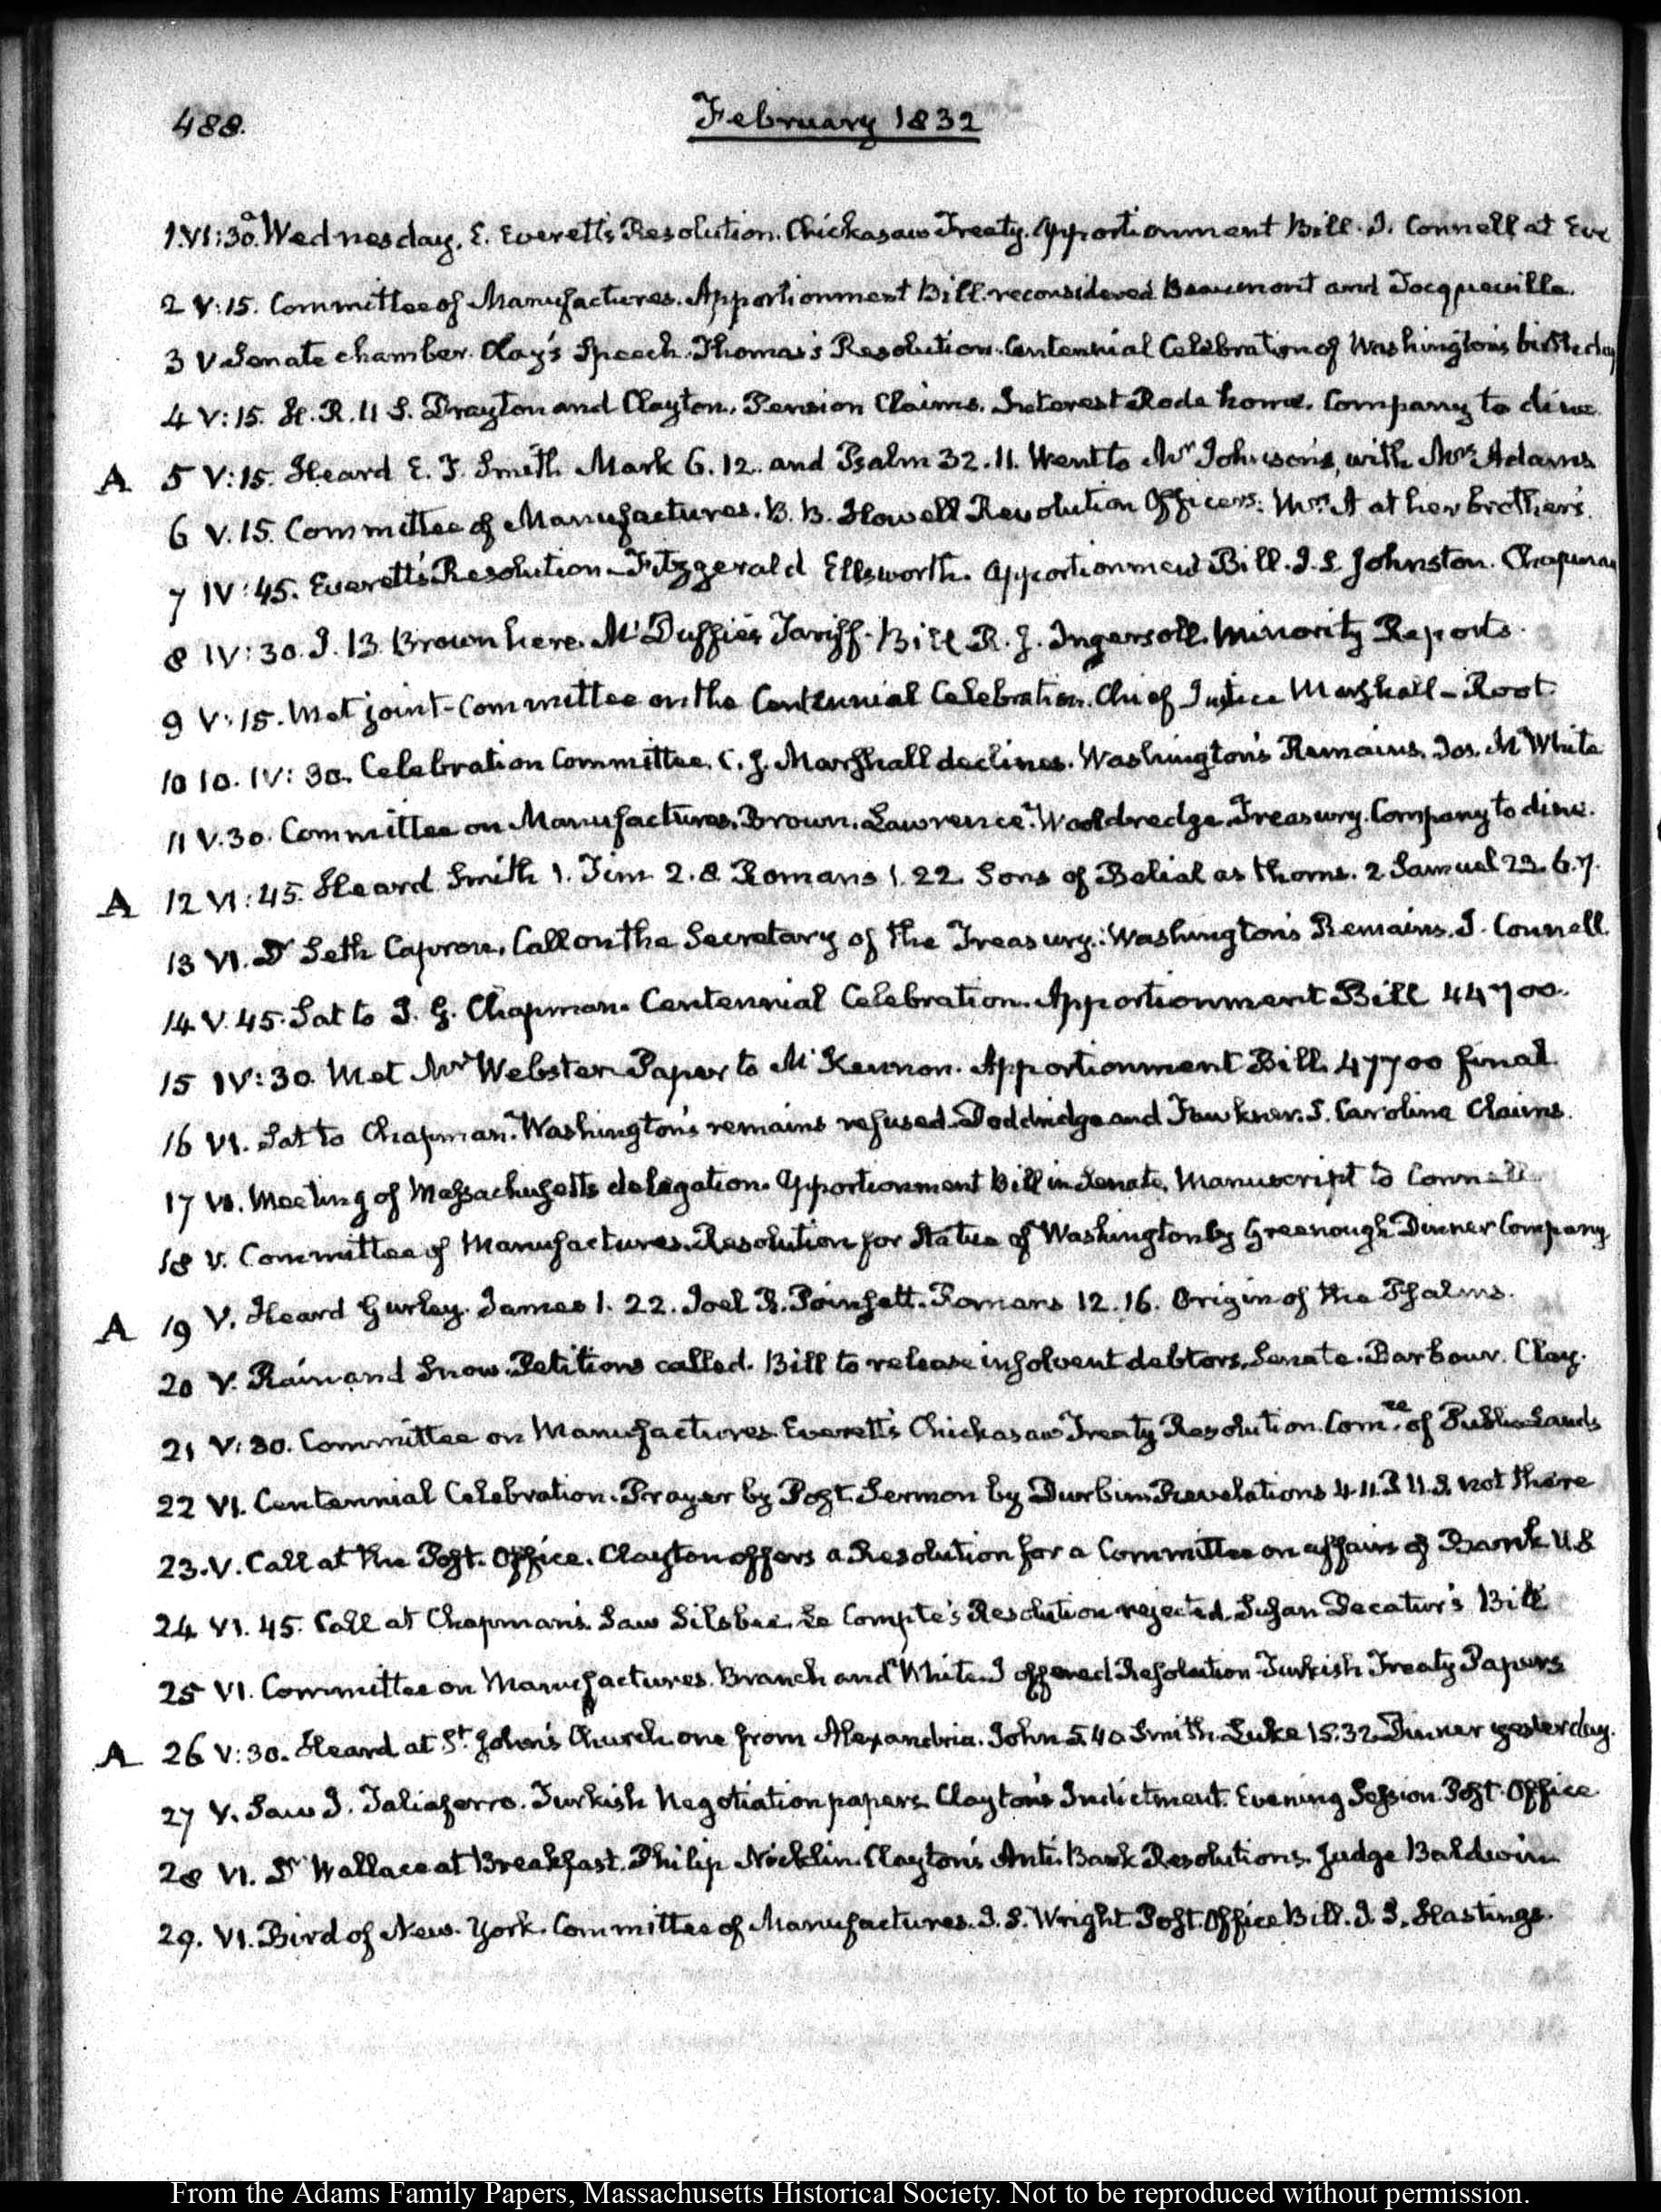 488.
February 1832
1. VI:30. a Wednesday. E. Everett's Resolution. Chickasaw Treaty. Apportionment Bill. J. Connell at Eve
2 V:15. Committee of Manufactures. Apportionment Bill. reconsidered Beaumont and Tocqueville.
3 V Senate chamber. Clay's Speech. Thomas's Resolution. Centennial Celebration of Washington's birthday
4 V:15. H. R. U S. Drayton and Clayton. Pension Claims. Interest Rode home. Company to dine.
A 5 V:15. Heard E. J. Smith. Mark 6. 12. and Psalm 32. 11. Went to Mr Johnson's, with Mrs Adams
6 V. 15. Committee of Manufactures. B. B. Howell Revolution Officers: Mrs A at her brother's.
7 IV:45. Everett's Resolution—Fitzgerald Ellsworth. Apportionment Bill. J. S. Johnston. Chapman
8 IV:30. J. B. Brown here. McDuffie's Tariff-Bill R. J. Ingersoll. Minority Reports.
9 V:15. Met joint-Committee on the Centennial Celebration. Chief Justice Marshall—Root.
10 10. IV:30. Celebration Committee. C. J. Marshall declines. Washington's Remains. Jos. M. White
11 V.30. Committee on Manufactures. Brown. Lawrence. Wooldredge. Treasury. Company to dine.
A 12 VI:45. Heard Smith 1. Tim 2. 8. Romans 1. 22. Sons of Belial as thorns. 2 Samuel 23. 6. 7.
13 VI. Dr Seth Capron, Call on the Secretary of the Treasury. Washington's Remains. J. Connell.
14. V. 45. Sat to J. G. Chapman. Centennial Celebration. Apportionment Bill 44700.
15 IV:30. Met Mr Webster Paper to McKennon. Apportionment Bill. 47700 final
16 VI. Sat to Chapman. Washington's remains refused. Doddridge and Fawkner. S. Carolina Claims.
17 VI. Meeting of Massachusetts delegation. Apportionment Bill in Senate. Manuscript to Connell
18 V. Committee of Manufactures. Resolution for Statue of Washington by Greenough Dinner Company
A 19 V. Heard Gurley. James 1. 22. Joel R. Poinsett. Romans 12. 16. Origin of the Psalms.
20 V. Rain and Snow. Petitions called. Bill to release insolvent debtors. Senate. Barbour. Clay.
21 V:30. Committee on Manufactures. Everett's Chickasaw Treaty Resolution. Comee. of Public Lands
22 VI. Centennial Celebration. Prayer by Post. Sermon by Durbin. Revelations 4. 11. P. U. S. not there
23. V. Call at the Post-Office. Clayton offers a Resolution for a Committee on affairs of Bank U.S
24 VI. 45. Call at Chapman's. Saw Silsbee. Le Compte's Resolution rejected. Susan Decatur's Bill
25 VI. Committee on Manufactures. Branch and White. I offered Resolution Turkish Treaty Papers
A 26 V:30. Heard at St. John's Church one from Alexandria. John 5. 40. Smith. Luke 15. 32. Dinner yesterday.
27 V. Saw J. Taliaferro. Turkish Negotiation papers Clayton's Indictment. Evening Session. Post-Office
28 VI. Dr Wallace at Breakfast. Philip Nicklin. Clayton's Anti. Bank Resolutions. Judge Baldwin
29. VI. Bird of New-York. Committee of Manufactures. J. S. Wright. Post-Office Bill. J. S. Hastings.
From the Adams Family Papers, Massachusetts Historical Society. Not to be reproduced without permission.